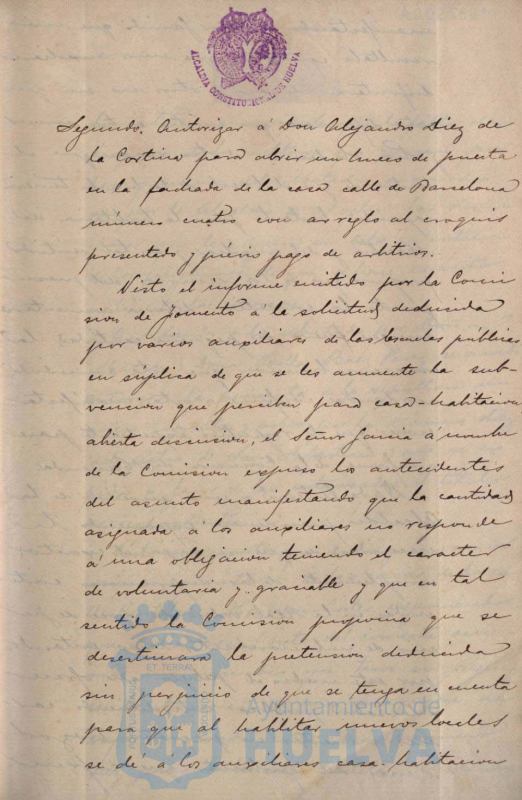 ALCALDIA CONSTITUCIONAL DE HUELVA
Segundo. Autorizar á Don Alejandro Diez de
la Cortina para abrir un hueco de puerta
en la fachada de la casa calle de Barcelona
número cuatro con arreglo al croquis
presentado y previo pago de arbitrios.
Visto el informe emitido por la Comi
sion de Fomento á la solicitud deducida
por varios auxiliares de las Escuelas públicas
en súplica de que se les aumente la sub-
vencion que perciben para casa-habitacion
abierta discusion, el Señor Garcia á nombre
de la Comision expuso los antecedentes
del asunto manifestando que la cantidad
asignada á los auxiliares no responde
á una obligacion teniendo el caracter
de voluntaria y graciable y que en tal
sentido la Comision proponia que se
desestimara la pretension deducida
sin perjuicio de que se tenga en cuenta
para que al habilitar nuevos locales
se dé á los auxiliares casa-habitacion
Ayuntamiento de
HUELVA
PORTUS MARIS ET TERRAE CUSTODIA